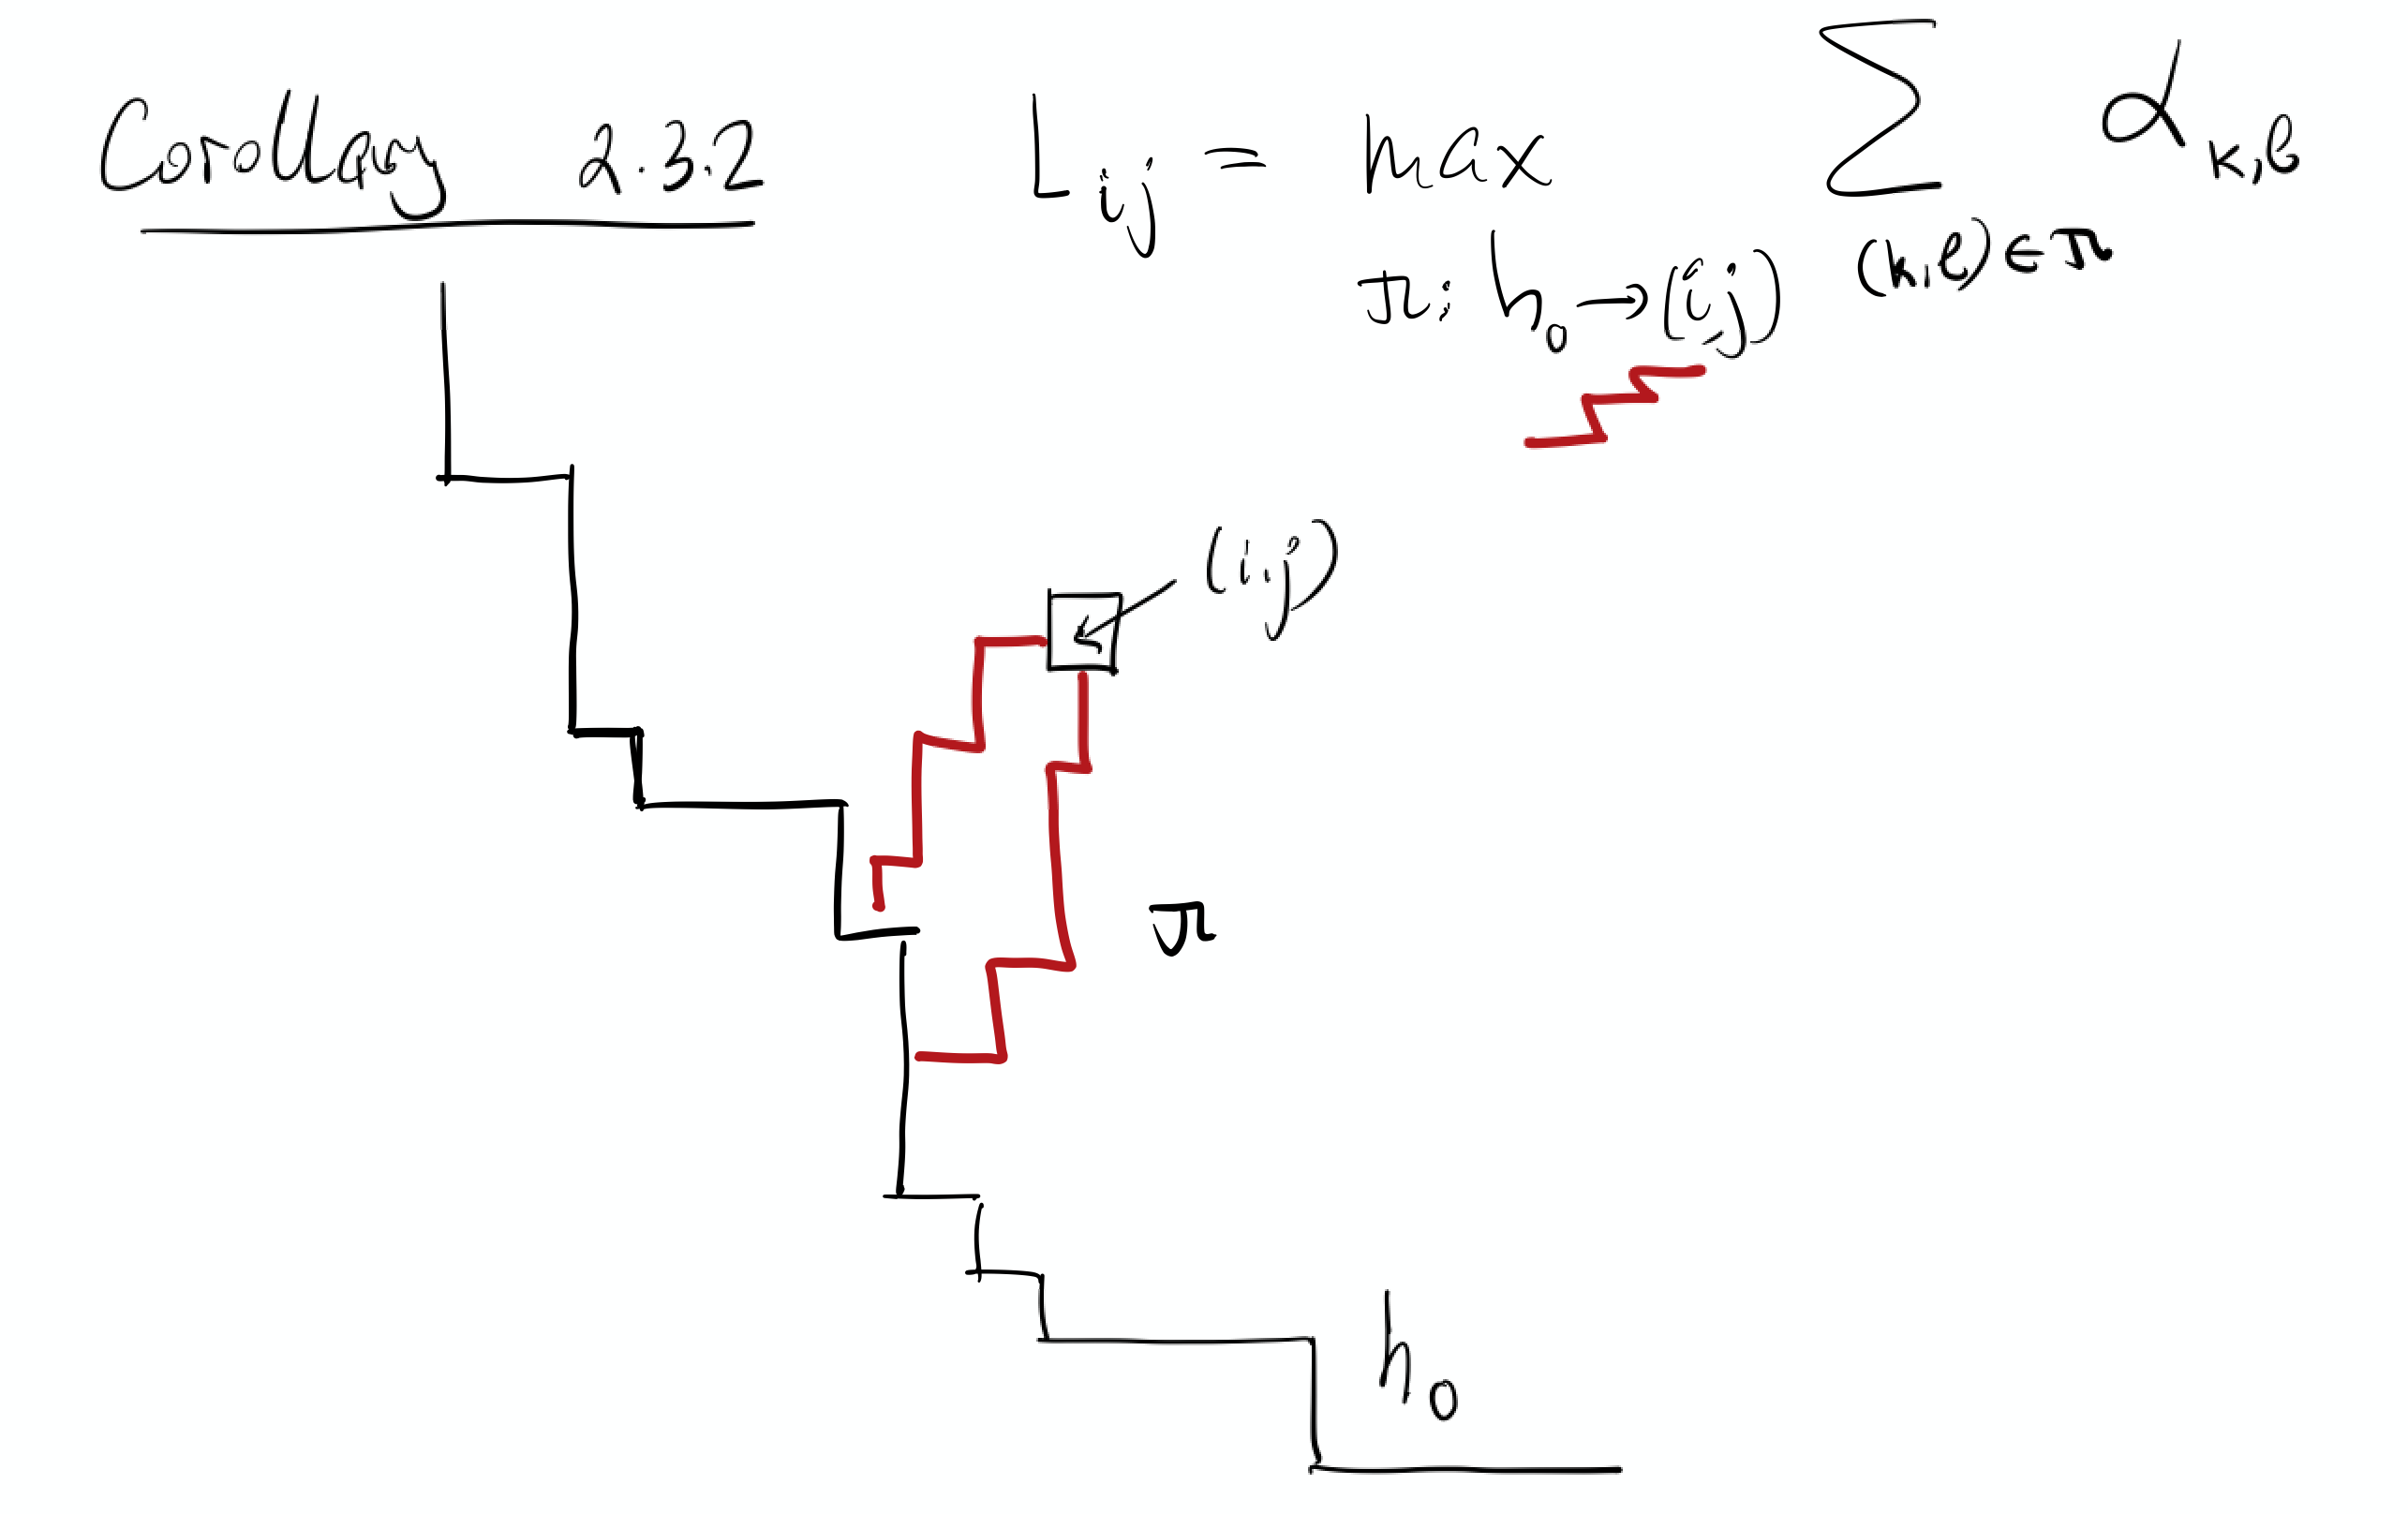 Corollary 2.3.2 L_{ij} = max_{π: h_0 → (i,j)} ∑_{(k,l) ∈ π} α_{k,l}
(i,j)
π
h_0